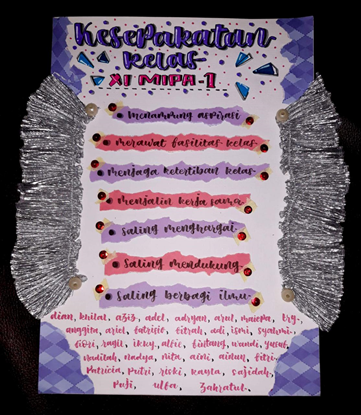 Kesepakatan
kelas
XI MIPA-1
menampung aspirasi
merawat fasilitas kelas
menjaga ketertiban kelas
menjalin kerja sama
saling menghargai
saling mendukung
saling berbagi ilmu
dian, khilal, aziz, adel, adryan, arul,
anggira, ariel, fabricio, fitrah, adi, ismi, syahmi,
fiozi, ragil, ikky, alfie, bintang, wandi, yusuf,
nadya, nita, aini, aidun, fitri,
Patricia, Putri, riski, kayla, sajidah,
Puji, ulfa, Zakratul.